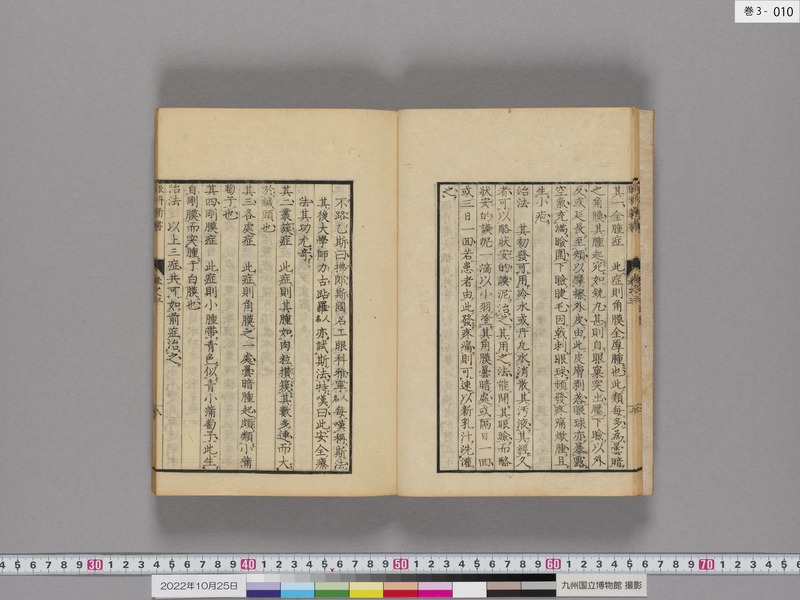 巻3- 010
其一全腫症 此症則角膜全厚腫也此類每多為曇暗
之角膜其腫起宛如鏡九甚則自眼窠突出壓下瞼以外
反或延長至頰以摩擦外皮由此皮膚剥客眼球亦暴露
空氣充満瞼囲下瞼睫毛因戟刺眼球頻發疼痛焮腫且
生小疣
治法 其初發可用冷水或井九水消散其汚液其經久
者可以酪狀安的謨泥治之其用之法能開其眼瞼而酪
狀安的謨泥一滴以小羽塗其角膜曇暗處或隔日一回
或三日一回若患者由此發疼痛則可速以新乳汁洗滌
之
不路乙斯曰拂郎斯國名工眼科雅寧人名每嘆稱斯法
其後大學師力古站羅人名亦試斯法特嘆曰此安全療
法其功尤奇
其二叢簇症 此症則其腫如肉粒攅簇其數多連而大
於鍼頭也
其三各處症 此症則角膜之一處曇暗腫起頗類小蒲
萄子也
其四剛膜症 此症則小腫帶青色似青小蒲萄子此生
自剛膜而突腫于白膜也
治法 以上三症共可如前症治之
眼科新書
30 40 50 60 70
2022年10月25日
九州国立博物館 撮影